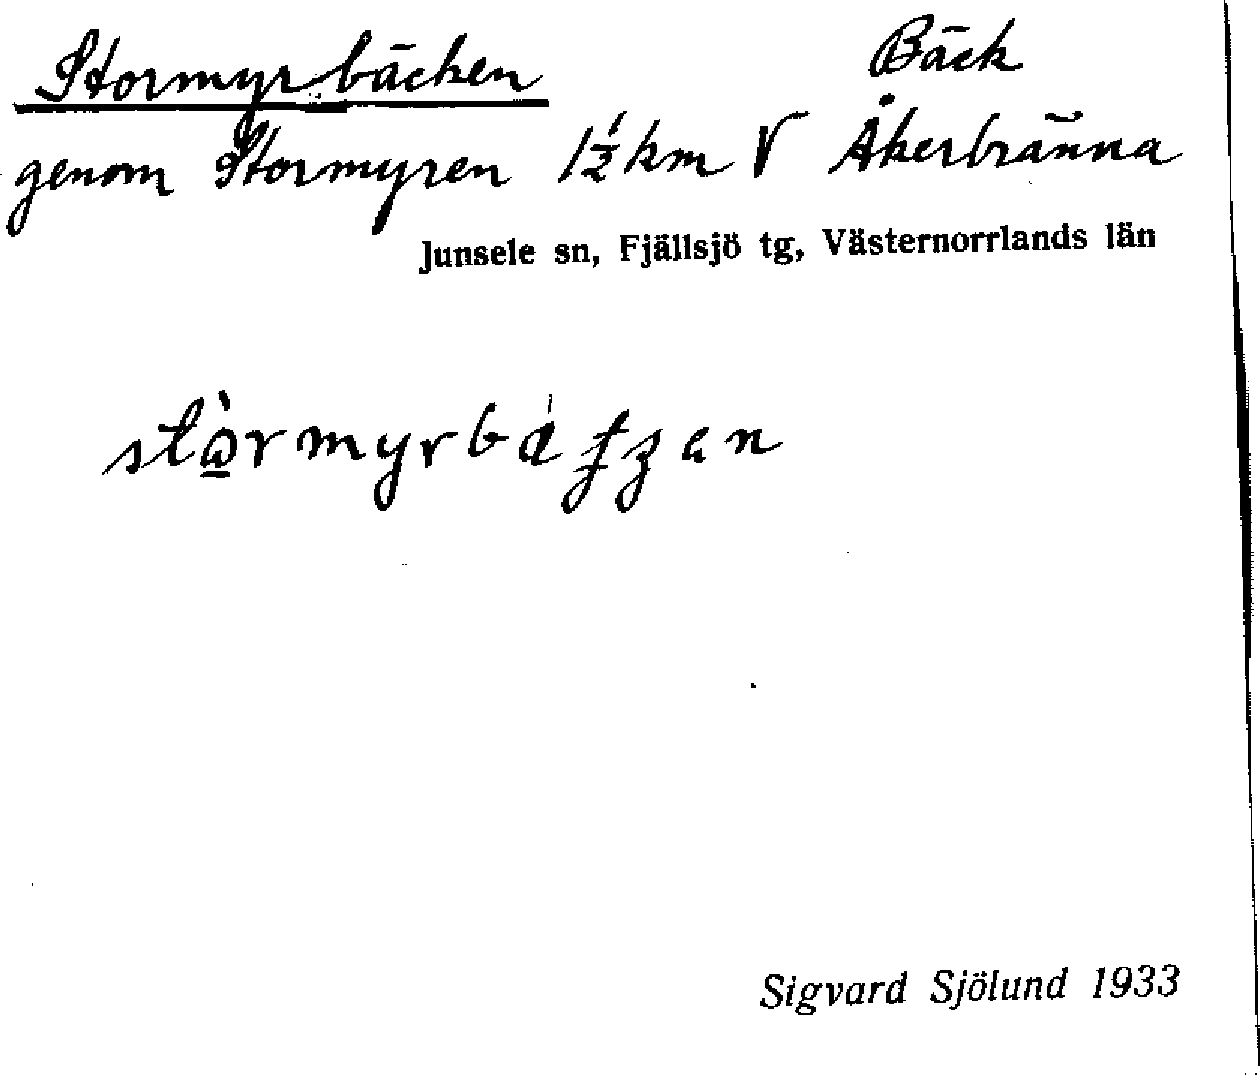 Stormyrbäcken Bäck
genom Stormyren 1½ km V Åkerbränna
Junsele sn, Fjällsjö tg, Västernorrlands län
Sigvard Sjölund 1933